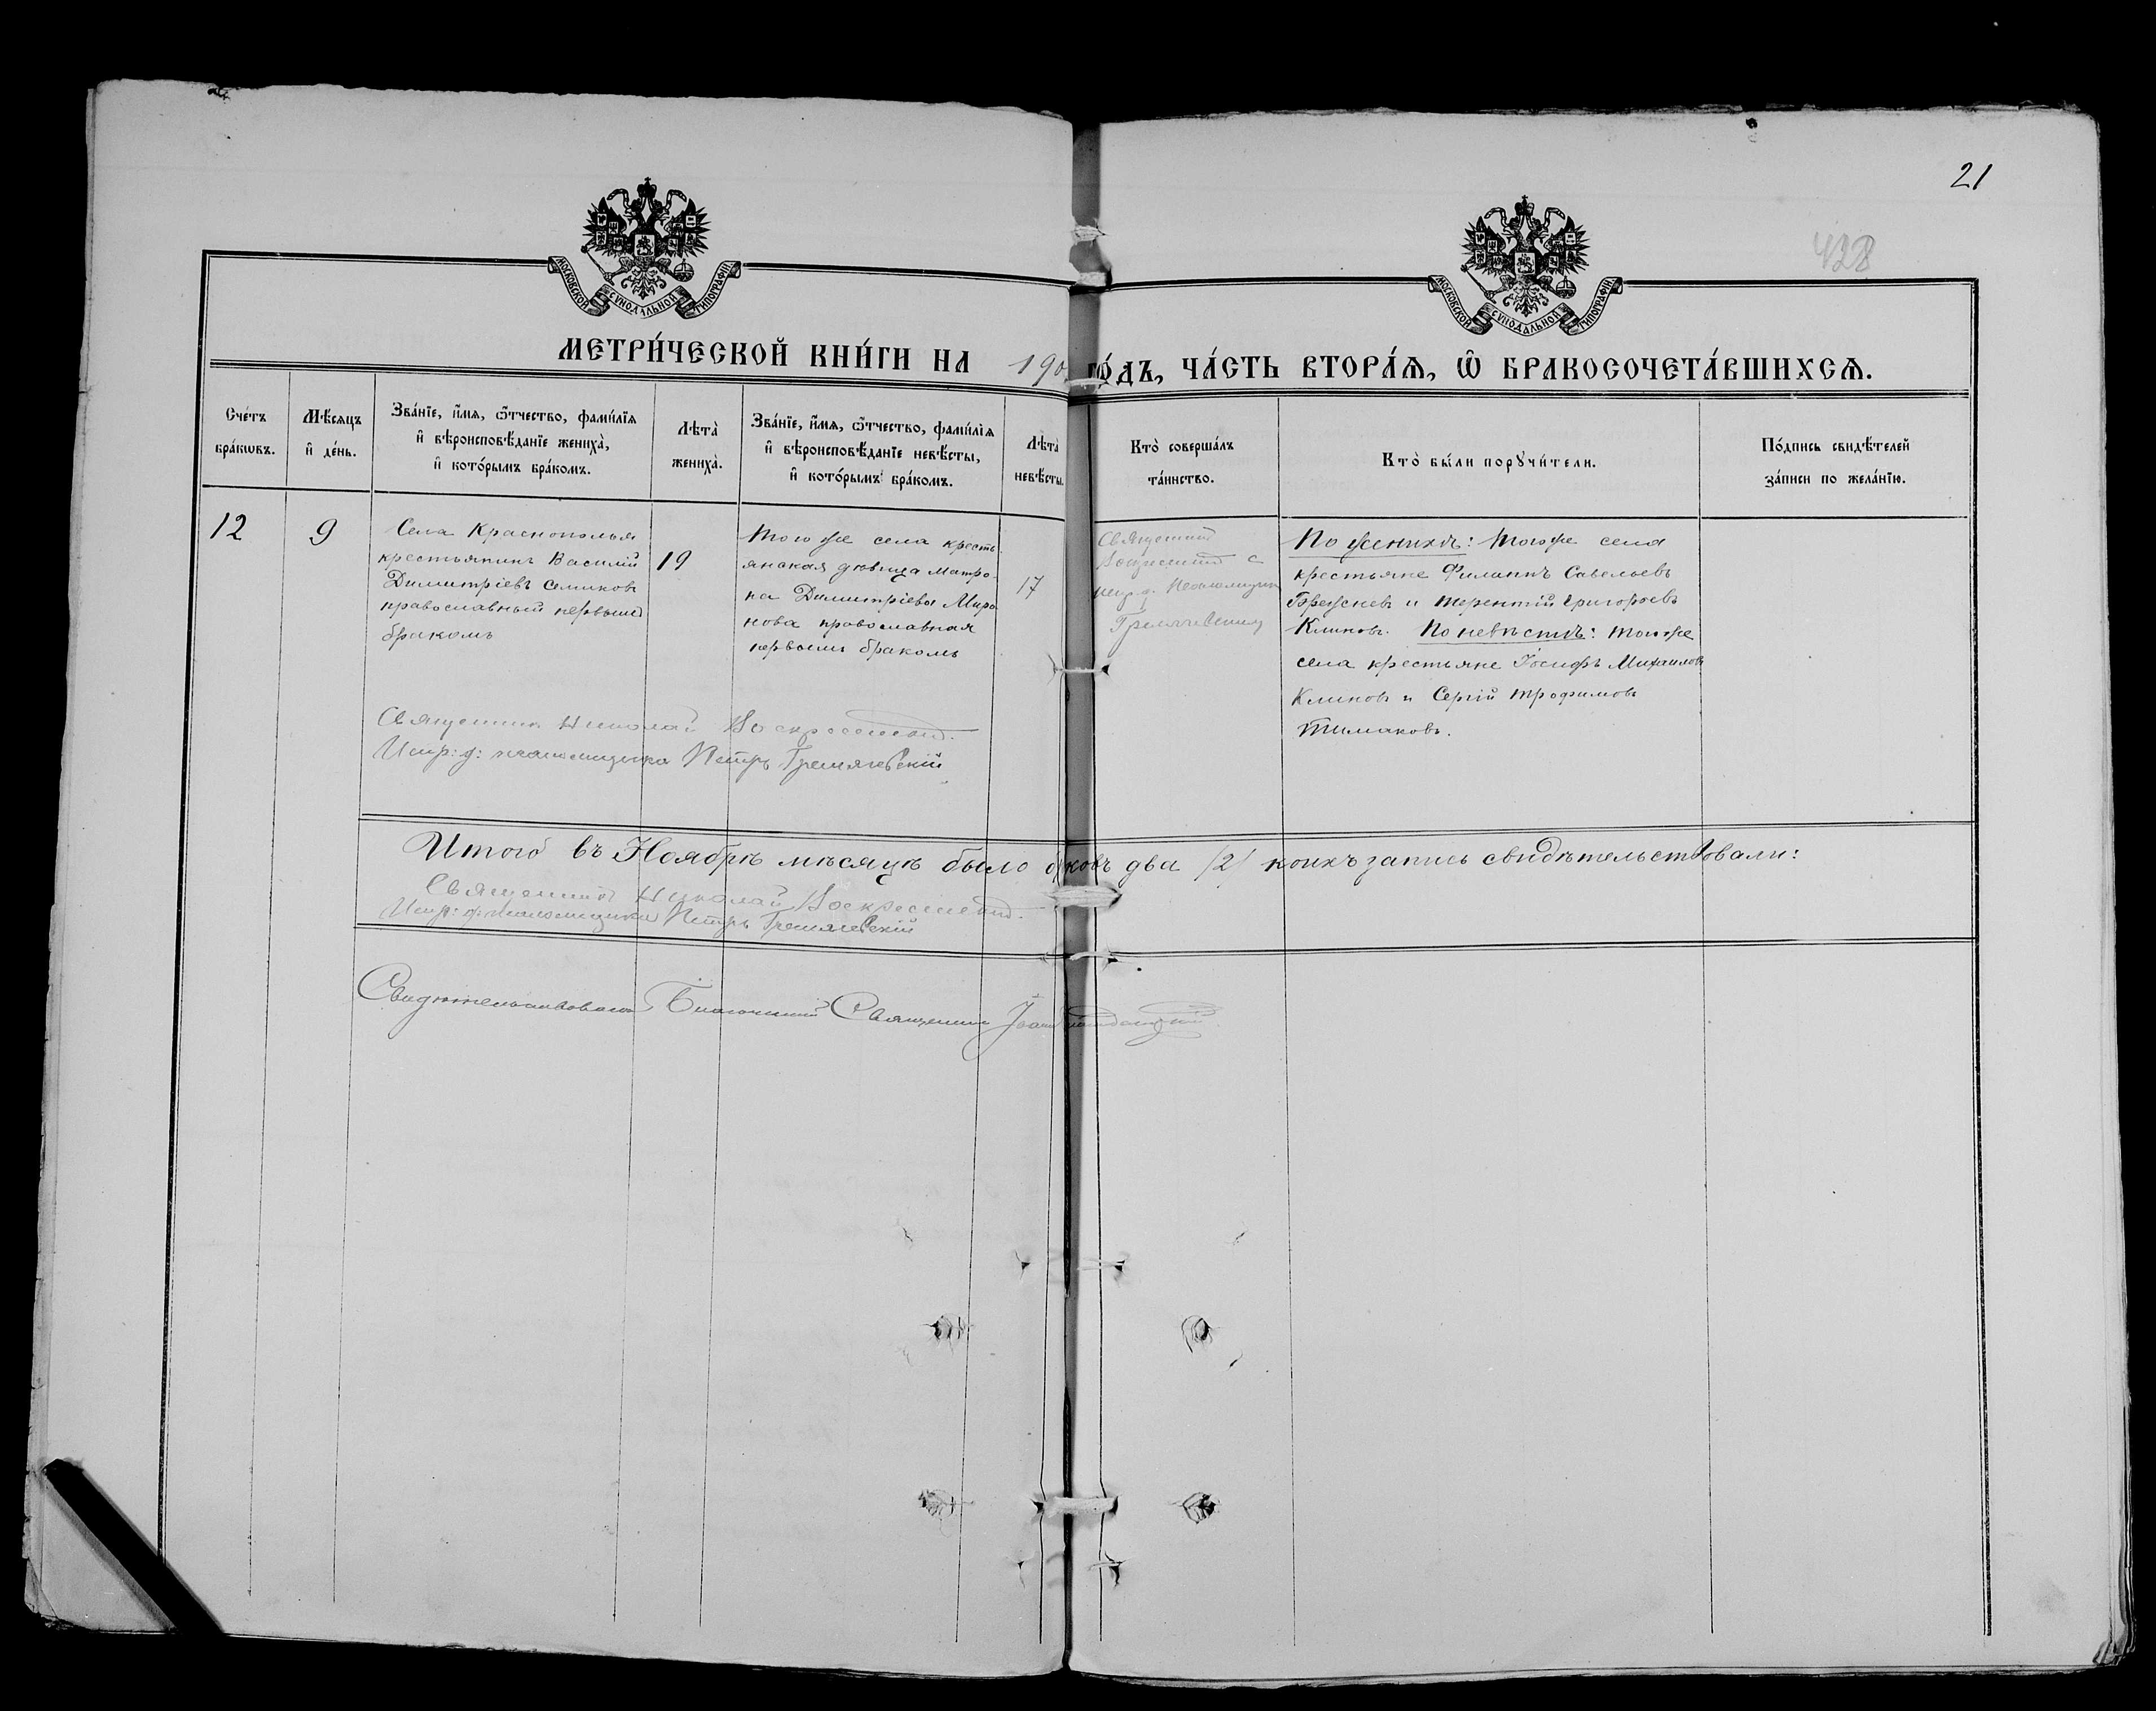 21
428
МОСКОВСКОЙ СУНОДАЛЬНОЙ ТИПОГРАФІИ.
МОСКОВСКОЙ СУНОДАЛЬНОЙ ТИПОГРАФІИ.
МЕТРИ́ЧЕСКОЙ КНИ́ГИ НА 190 ГО́ДЪ, ЧА́СТЬ ВТОРА́Ѧ, Ѡ҆ БРАКОСОЧЕТА́ВШИХСѦ.
Сче́тъ
бра́кѡвъ.
Мѣ́сяцъ
и҆ де́нь.
Зва́нїе, и҆́мя, ѻ҆́тчество, фами́лїя
и҆ вѣроисповѣ́данїе жениха̀,
и҆ кото́рымъ бра́комъ.
Лѣта̀
жениха̀.
Зва́нїе, и҆́мя, ѻ҆́тчество, фами́лїя
и҆ вѣроисповѣ́данїе невѣ́сты,
и҆ кото́рымъ бра́комъ.
Лѣта̀
невѣ́сты.
Кто̀ соверша́лъ
та́инство.
Кто̀ бы́ли порꙋчи́тели.
По́дпись свидѣ́телей
за́писи по жела́нїю.
12
9
Села Краснополья
крестьянинъ Василій
Димитріевъ Семиковъ
православный первымъ
бракомъ
19
Того же села кресть-
янская дѣвица Матро-
на Димитріева Миро
нова православная
первымъ бракомъ
17
Священникъ
Воскресенскій с
испр. д. Псаломщика
Гремячевскимъ
По женихѣ: Того же села
крестьяне Филиппъ Савельевъ
Брежневъ и Терентій Григорьевъ
Климовъ. По невѣстѣ: Того же
села крестьяне Іосифъ Михаиловъ
Климовъ и Сергій Трофимовъ
Тимаковъ.
Священникъ Николай Воскресенскій.
Испр: д: псаломщика Петръ Гремячевскій
Итого въ Ноябрѣ мѣсяцѣ было б ковъ два /2/ коихъ запись свидѣтельствовали:
Священникъ Николай Воскресенскій.
Испр: д: псаломщика Петръ Гремячевскій
Свидѣтельствовалъ Благочинный Священникъ Іоаннъ